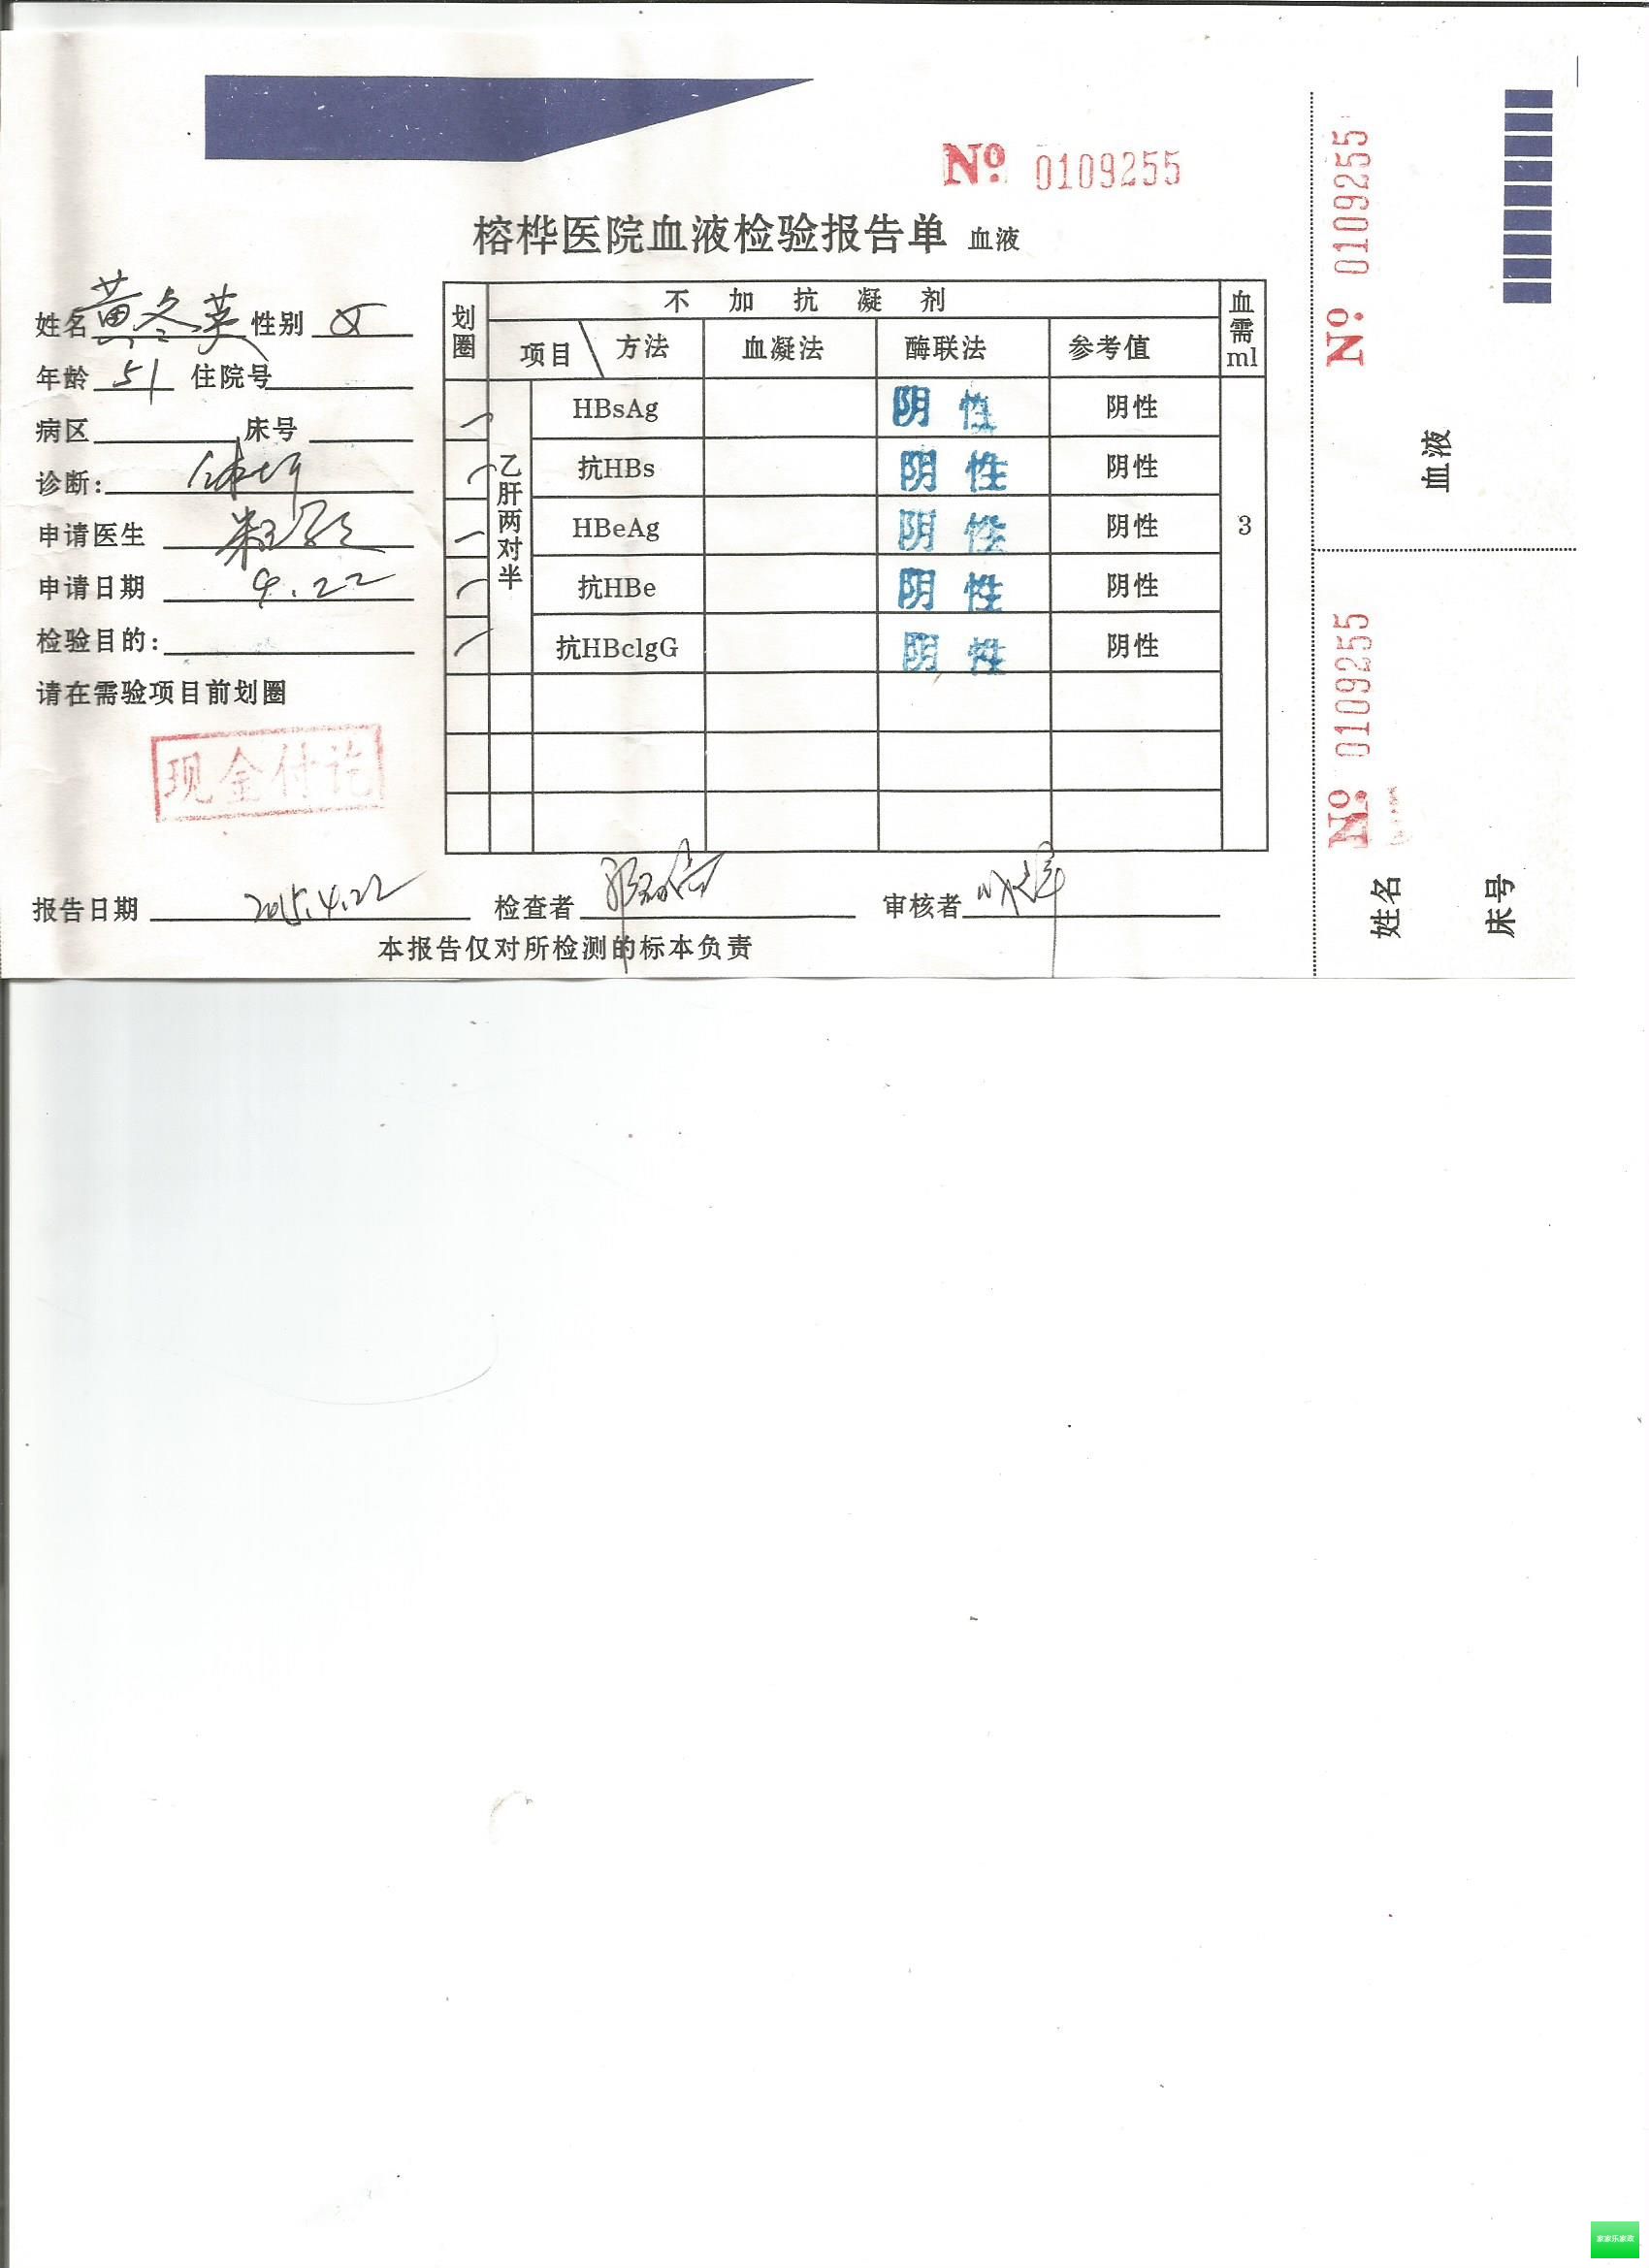 № 0109255
榕桦医院血液检验报告单 血液
姓名 黄冬英 性别 女
年龄 51 住院号
病区 床号
诊断: 体检
申请医生
申请日期 4.22
检验目的:
请在需验项目前划圈
现金付讫
划圈 不加抗凝剂 血需ml
项目 方法 血凝法 酶联法 参考值
乙肝两对半
HBsAg 阴性 阴性
抗HBs 阴性 阴性
HBeAg 阴性 阴性 3
抗HBe 阴性 阴性
抗HBclgG 阴性 阴性
报告日期 2015.4.22 检查者 审核者
本报告仅对所检测的标本负责
№ 0109255
血液
№ 0109255
姓名
床号
家家乐家政